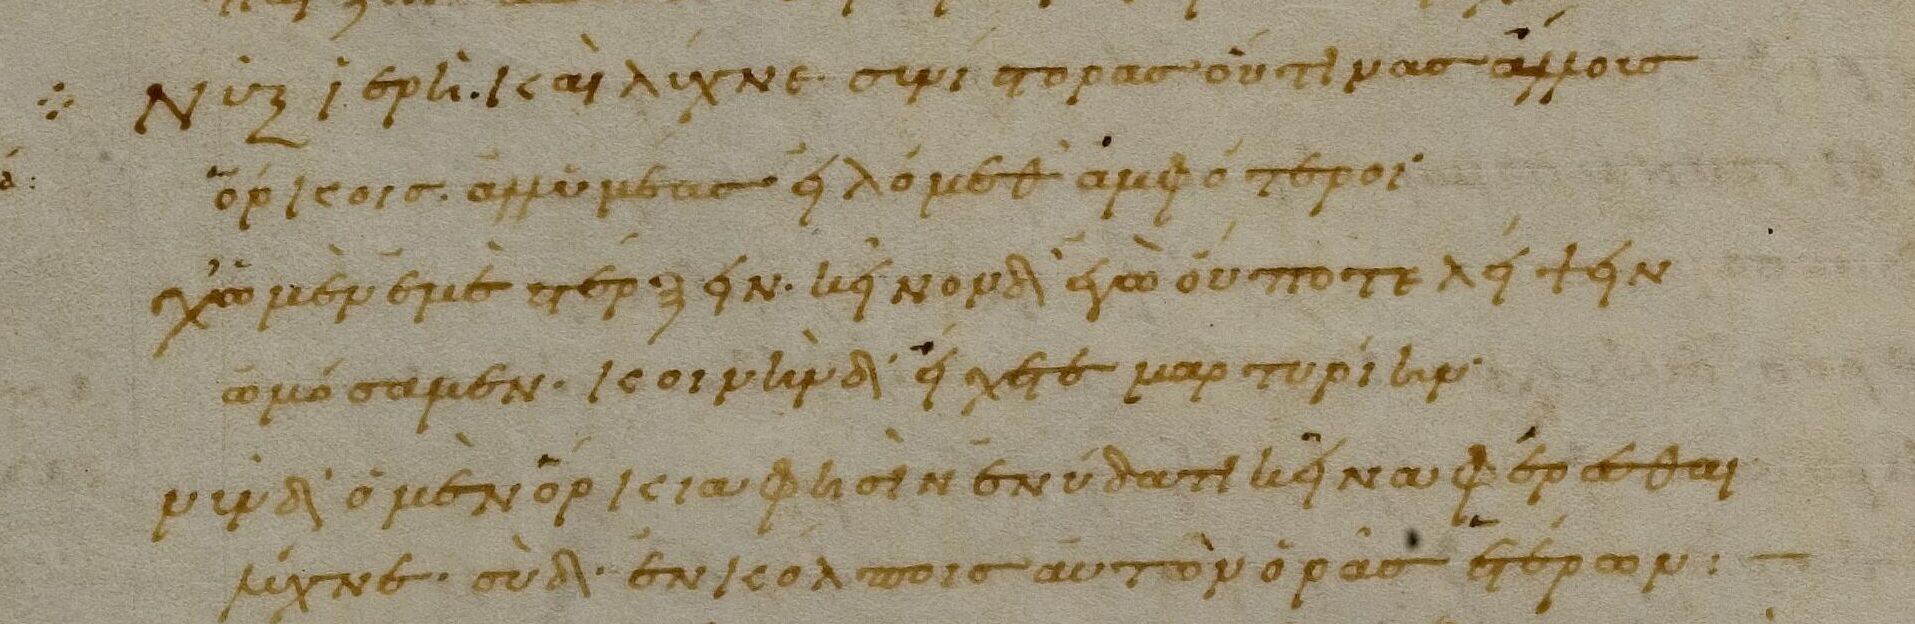 Νὺξ ἱερὴ καὶ λύχνε συνίστορας οὔτινας ἄλλους
ὅρκοις ἀλλ' ὑμέας εἱλόμεθ' ἀμφότεροι
χὠ μὲν ἐμὲ στέρξειν κεῖνον δ' ἐγὼ οὔποτε λείψειν
ὠμόσαμεν κοινὴν δ' εἴχετε μαρτυρίην
νῦν δ' ὁ μὲν ὅρκιά φησιν ἐν ὕδατι κεῖνα φέρεσθαι
λύχνε σὺ δ' ἐν κόλποις αὐτὸν ὁρᾷς ἑτέρων :—